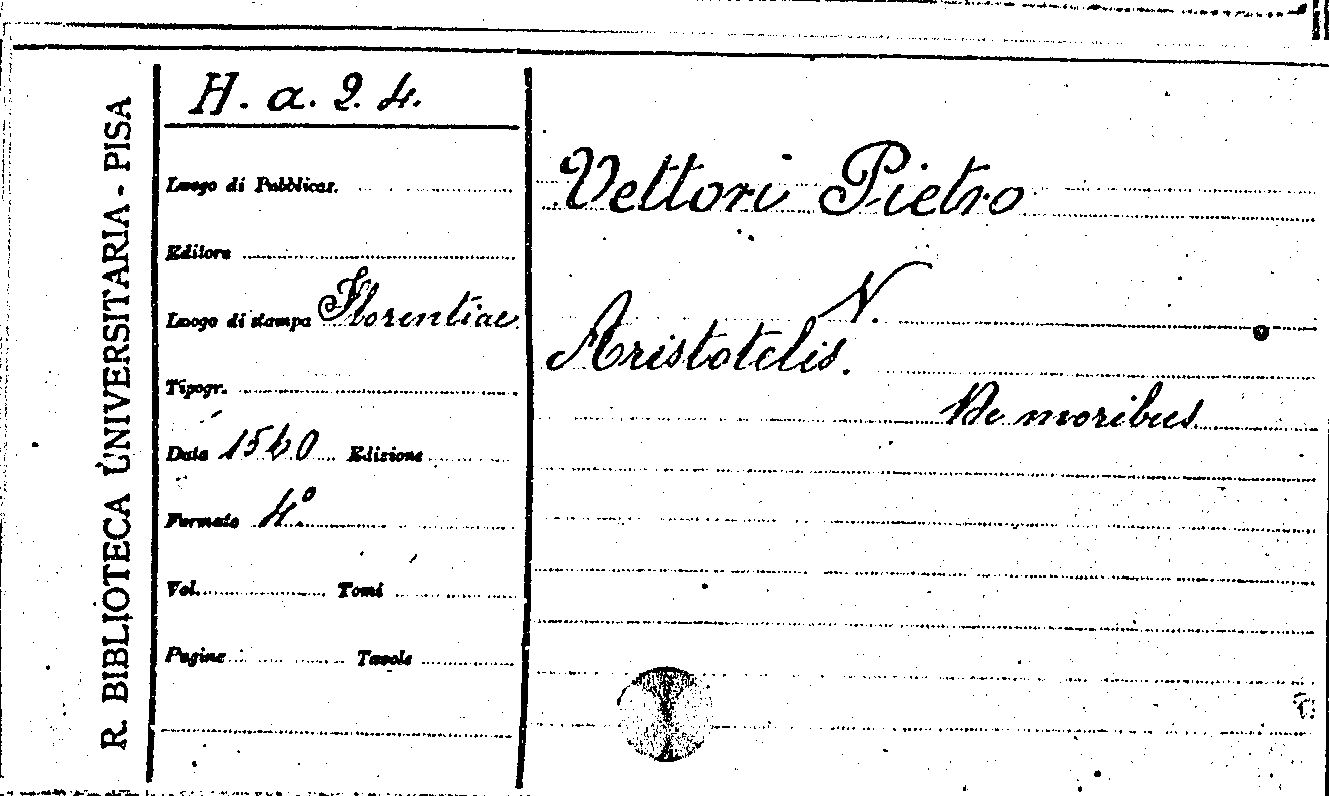 R. BIBLIOTECA UNIVERSITARIA - PISA
H. a. 2. 4.
Luogo di Pubblicaz.
Editore
Luogo di stampa Florentiae
Tipogr.
Data 1560 Edizione
Formato 4º
Vol. Tomi
Pagine Tavole
Vettori Pietro
V.
Aristotelis.
De moribus